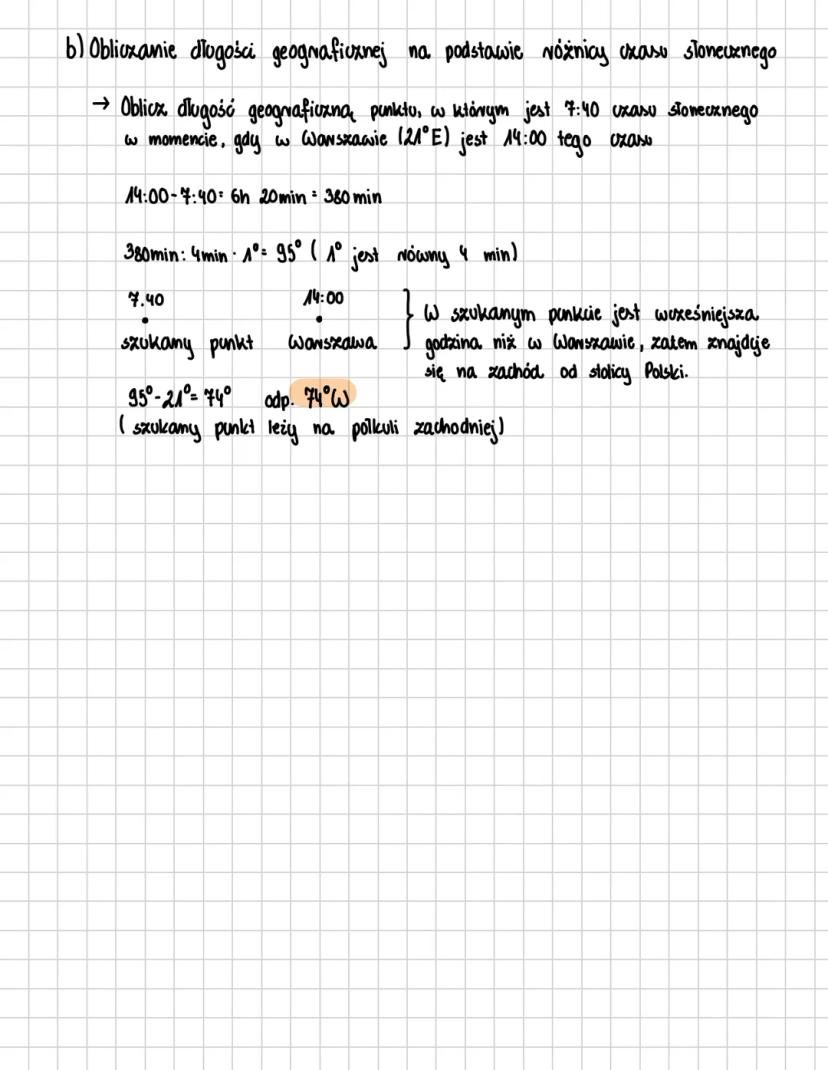 b) Obliczanie długości geograficznej na podstawie różnicy czasu słonecznego
→ Oblicz długość geograficzną punktu, w którym jest 7:40 czasu słonecznego
w momencie, gdy w Warszawie (21°E) jest 14:00 tego czasu
14:00-7:40= 6h 20min = 380 min
380min: 4min · 1°= 95° ( 1° jest równy 4 min)
7.40 14:00
szukany punkt Warszawa
} W szukanym punkcie jest wcześniejsza
godzina niż w Warszawie, zatem znajduje
się na zachód od stolicy Polski.
95°-21°= 74° odp. 74°W
( szukany punkt leży na półkuli zachodniej)